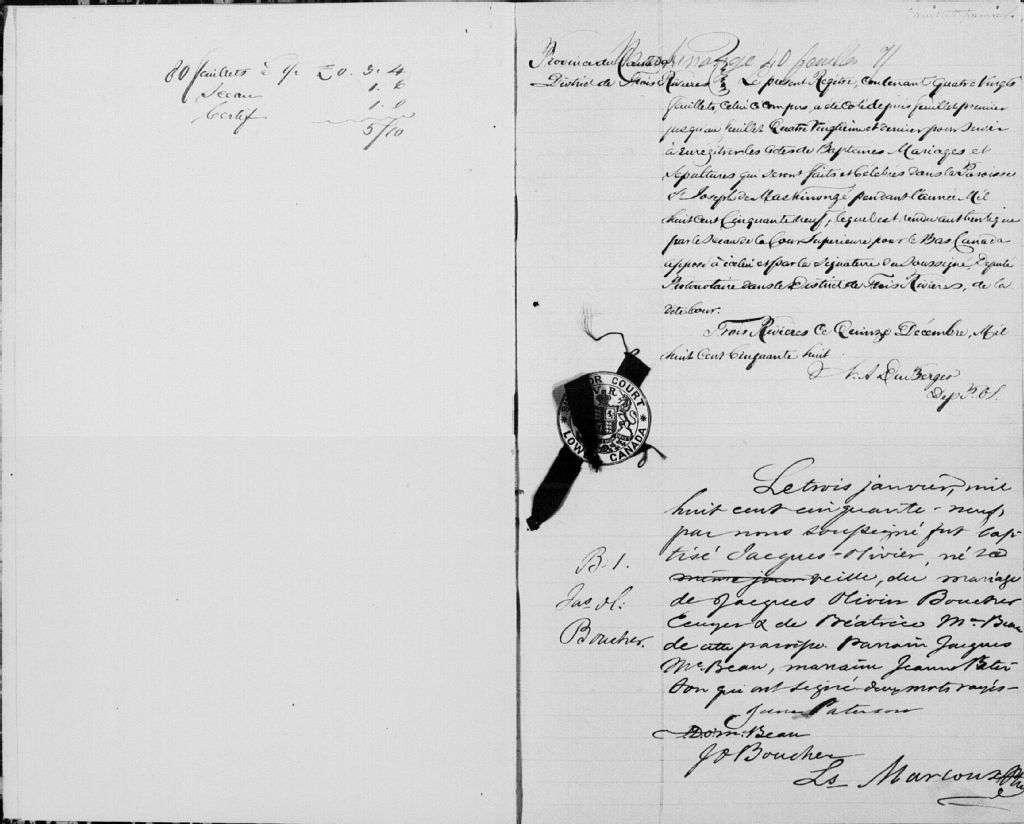 80 feuillets à 1/. £0. 3. 4
Sceau 1. 6
Certif 1. 0
5/10
Maskinongé 40 feuilles
Province du Canada
District de Trois Rivières
Le présent Régitre, contenant Quatre Vingts
feuillets, celui ci compris, a été coté depuis feuillet premier
jusqu'au feuillet Quatre Vingtième et dernier pour servir
à Enregitrer les Actes de Baptêmes Mariages et
Sépultures qui seront faits et célébrés dans la Paroisse
St Joseph de Maskinongé pendant l'année Mil
huit cent Cinquante neuf, lequel est rendu authentique
par le Sceau de la Cour Supérieure pour le Bas Canada
apposé à icelui et par la Signature du Soussigné, Député
Protonotaire dans le District de Trois Rivières, de la
dite Cour.
Trois Rivières Ce Quinze Décembre, Mil
huit Cent Cinquante huit
DuBerger
Dep P. C. S.
SUPERIOR COURT
V R
LOWER CANADA
B-1.
Jas Ol:
Boucher.
Le trois janvier, mil
huit cent cinquante-neuf,
par nous soussigné fut bap-
tisé Jacques-Olivier, né la
même jour veille, du mariage
de Jacques Olivier Boucher
Ecuyer & de Béatrice Mc Bean
de cette paroisse. Parrain Jacques
Mc Bean, marraine Jeanne Pater-
son qui ont signé deux mots rayés-
Jane Paterson
Bean
J O Boucher
Ls Marcoux Ptre